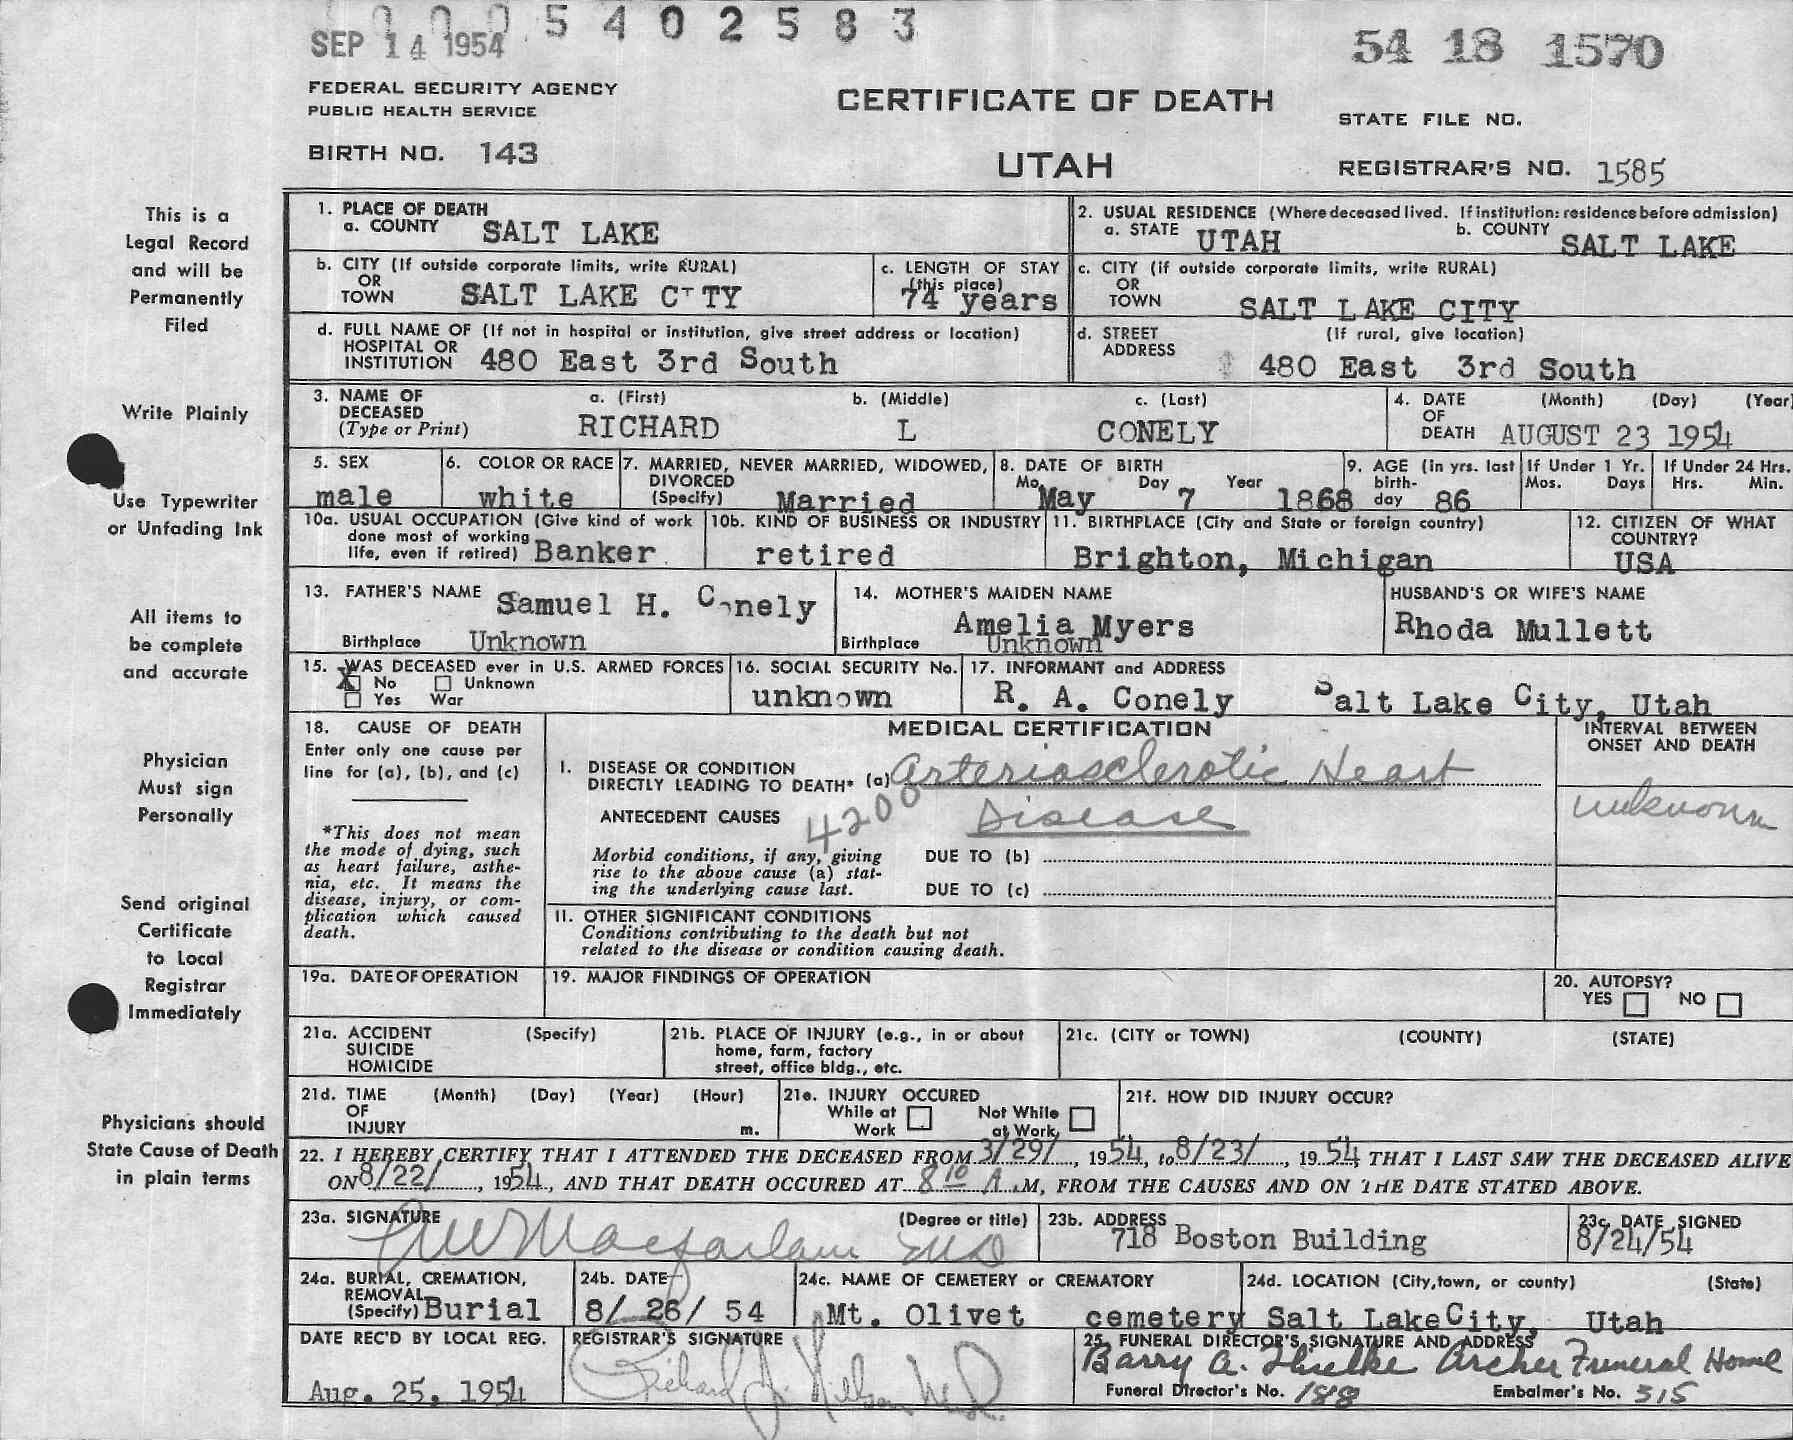 0005402583
SEP 14 1954
54 18 1570
FEDERAL SECURITY AGENCY
PUBLIC HEALTH SERVICE
CERTIFICATE OF DEATH
STATE FILE NO.
BIRTH NO. 143
UTAH
REGISTRAR'S NO. 1585
This is a
Legal Record
and will be
Permanently
Filed
Write Plainly
Use Typewriter
or Unfading Ink
All items to
be complete
and accurate
Physician
Must sign
Personally
Send original
Certificate
to Local
Registrar
Immediately
Physicians should
State Cause of Death
in plain terms
1. PLACE OF DEATH
a. COUNTY SALT LAKE
2. USUAL RESIDENCE (Where deceased lived. If institution: residence before admission)
a. STATE UTAH b. COUNTY SALT LAKE
b. CITY (If outside corporate limits, write RURAL)
OR
TOWN SALT LAKE CITY
c. LENGTH OF STAY
(this place)
74 years
c. CITY (if outside corporate limits, write RURAL)
OR
TOWN SALT LAKE CITY
d. FULL NAME OF (If not in hospital or institution, give street address or location)
HOSPITAL OR
INSTITUTION 480 East 3rd South
d. STREET (If rural, give location)
ADDRESS 480 East 3rd South
3. NAME OF a. (First) b. (Middle) c. (Last)
DECEASED
(Type or Print) RICHARD L CONELY
4. DATE (Month) (Day) (Year)
OF
DEATH AUGUST 23 1954
5. SEX
male
6. COLOR OR RACE
white
7. MARRIED, NEVER MARRIED, WIDOWED,
DIVORCED
(Specify) Married
8. DATE OF BIRTH
Mo. Day Year
May 7 1868
9. AGE (in yrs. last
birth-
day 86
If Under 1 Yr.
Mos. Days
If Under 24 Hrs.
Hrs. Min.
10a. USUAL OCCUPATION (Give kind of work
done most of working
life, even if retired) Banker
10b. KIND OF BUSINESS OR INDUSTRY
retired
11. BIRTHPLACE (City and State or foreign country)
Brighton, Michigan
12. CITIZEN OF WHAT
COUNTRY?
USA
13. FATHER'S NAME Samuel H. Conely
Birthplace Unknown
14. MOTHER'S MAIDEN NAME
Amelia Myers
Birthplace Unknown
HUSBAND'S OR WIFE'S NAME
Rhoda Mullett
15. WAS DECEASED ever in U.S. ARMED FORCES
X No Unknown
Yes War
16. SOCIAL SECURITY No.
unknown
17. INFORMANT and ADDRESS
R. A. Conely Salt Lake City, Utah
18. CAUSE OF DEATH
Enter only one cause per
line for (a), (b), and (c)
*This does not mean
the mode of dying, such
as heart failure, asthe-
nia, etc. It means the
disease, injury, or com-
plication which caused
death.
MEDICAL CERTIFICATION
INTERVAL BETWEEN
ONSET AND DEATH
I. DISEASE OR CONDITION
DIRECTLY LEADING TO DEATH* (a) Arteriosclerotic Heart
ANTECEDENT CAUSES 4200 Disease
unknown
Morbid conditions, if any, giving
rise to the above cause (a) stat-
ing the underlying cause last.
DUE TO (b)
DUE TO (c)
II. OTHER SIGNIFICANT CONDITIONS
Conditions contributing to the death but not
related to the disease or condition causing death.
19a. DATE OF OPERATION
19. MAJOR FINDINGS OF OPERATION
20. AUTOPSY?
YES NO
21a. ACCIDENT (Specify)
SUICIDE
HOMICIDE
21b. PLACE OF INJURY (e.g., in or about
home, farm, factory
street, office bldg., etc.
21c. (CITY or TOWN) (COUNTY) (STATE)
21d. TIME (Month) (Day) (Year) (Hour)
OF
INJURY m.
21e. INJURY OCCURED
While at Not While
Work at Work
21f. HOW DID INJURY OCCUR?
22. I HEREBY CERTIFY THAT I ATTENDED THE DECEASED FROM 3/29/, 1954, to 8/23/, 1954, THAT I LAST SAW THE DECEASED ALIVE
ON 8/22/, 1954, AND THAT DEATH OCCURED AT 8 10 A.M, FROM THE CAUSES AND ON THE DATE STATED ABOVE.
23a. SIGNATURE (Degree or title)
MD
23b. ADDRESS
718 Boston Building
23c. DATE SIGNED
8/24/54
24a. BURIAL, CREMATION,
REMOVAL
(Specify) Burial
24b. DATE
8/ 26/ 54
24c. NAME OF CEMETERY or CREMATORY
Mt. Olivet cemetery
24d. LOCATION (City, town, or county) (State)
Salt Lake City, Utah
DATE REC'D BY LOCAL REG.
Aug. 25, 1954
REGISTRAR'S SIGNATURE
Richard J. Nelson M.D.
25. FUNERAL DIRECTOR'S SIGNATURE AND ADDRESS
Barry A. Archer Funeral Home
Funeral Director's No. 188 Embalmer's No. 315